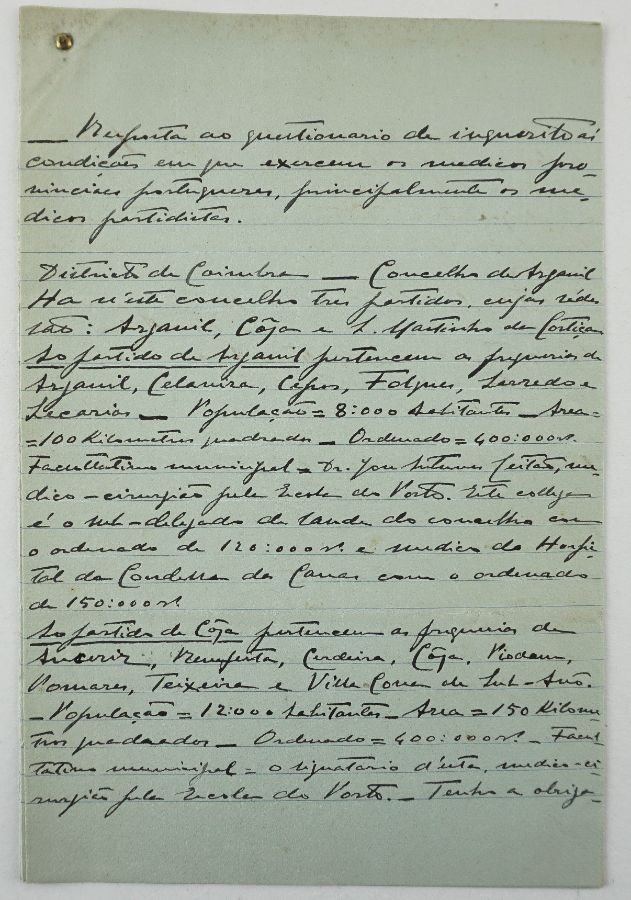 — Resposta ao questionario de inquerito ás
condições em que exercem os medicos pro-
vinciaes portuguezes, principalmente os me-
dicos partidistas.
Districto de Coimbra — Concelho de Arganil
Ha n'este concelho tres partidos, cujas sédes
são: Arganil, Côja e S. Martinho da Cortiça
Ao partido de Arganil pertencem as freguezias de
Arganil, Celaviza, Cepos, Folques, Sarzedo e
Secarias — População = 8:000 habitantes — Area =
= 100 Kilometros quadrados — Ordenado = 400:000 rs.
Facultativo municipal = Dr. José Antunes Leitão, me-
dico-cirurgião pela Escola do Porto. Este collega
é o sub-delegado de saude do concelho com
o ordenado de 120:000 rs. e medico do Hospi-
tal da Condessa das Canas com o ordenado
de 150:000 rs.
Ao partido de Côja pertencem as freguezias de
Anceriz, Bemfeita, Cerdeira, Côja, Piodam,
Pomares, Teixeira e Villa-Cova de Sub-Avô.
— População = 12:000 habitantes — Area = 150 Kilome-
tros quadrados — Ordenado = 400:000 rs. — Facul-
tativo municipal = o signatario d'esta, medico-ci-
rurgião pela Escola do Porto. — Tenho a obriga-